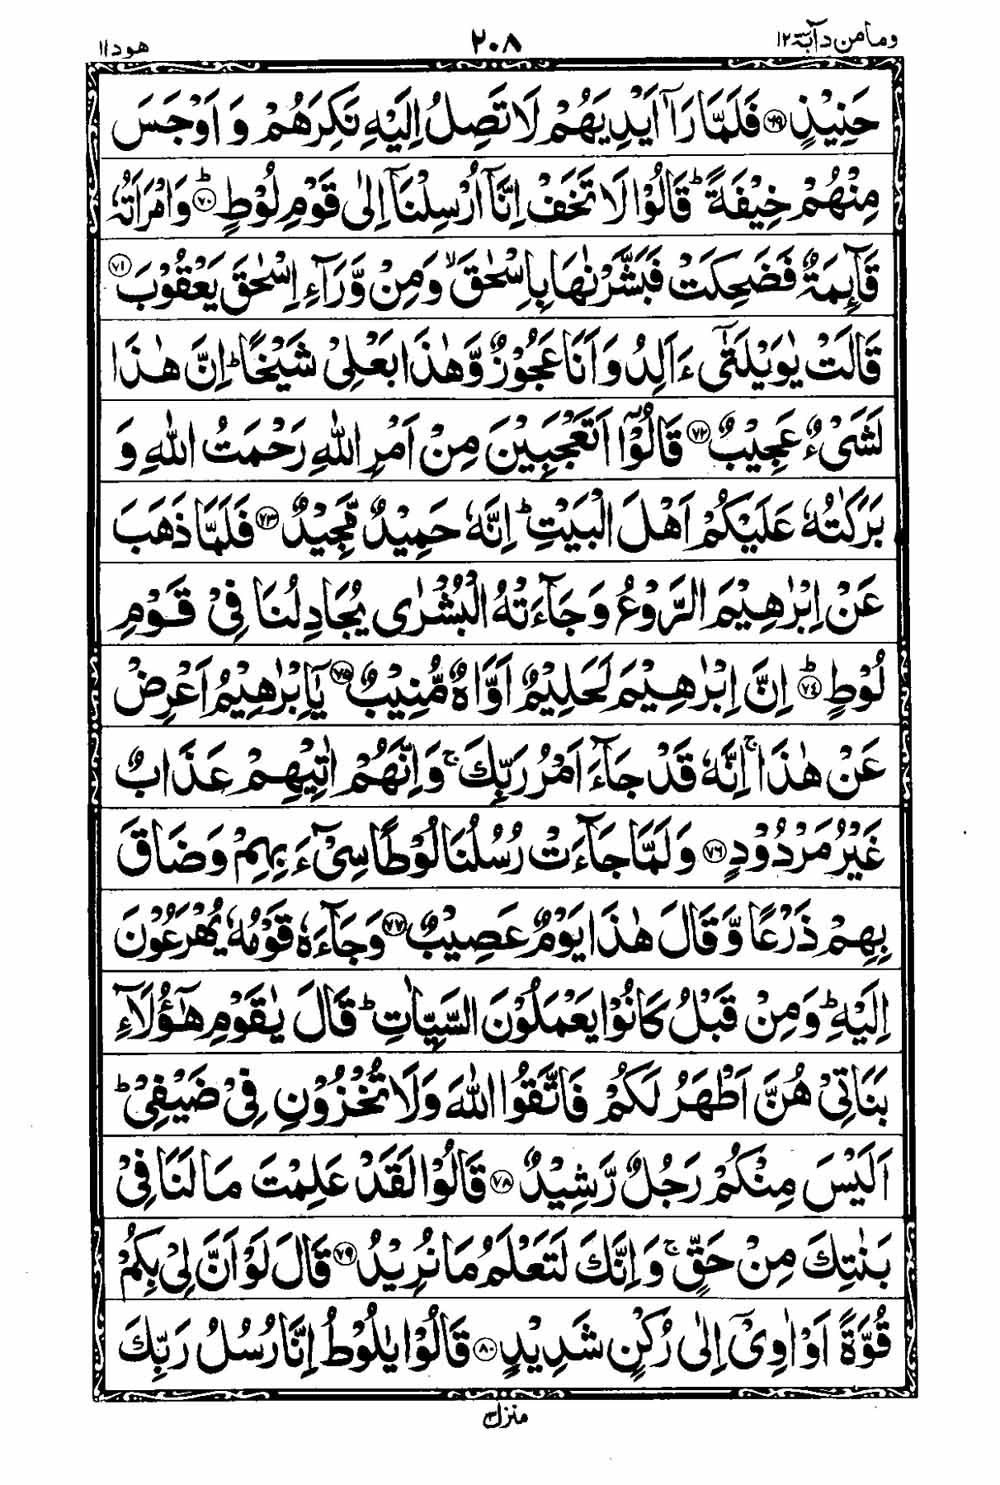 وما من دآبة ١٢
٢٠٨
هود ١١
حَنِيْذٍ ﴿٦٩﴾ فَلَمَّا رَاٰۤ اَيْدِيَهُمْ لَا تَصِلُ اِلَيْهِ نَكِرَهُمْ وَ اَوْجَسَ
مِنْهُمْ خِيْفَةً ؕ قَالُوْا لَا تَخَفْ اِنَّاۤ اُرْسِلْنَاۤ اِلٰى قَوْمِ لُوْطٍ ﴿٧٠﴾ؕ وَامْرَاَتُهٗ
قَآئِمَةٌ فَضَحِكَتْ فَبَشَّرْنٰهَا بِاِسْحٰقَ ۙ وَمِنْ وَّرَآءِ اِسْحٰقَ يَعْقُوْبَ ﴿٧١﴾
قَالَتْ يٰوَيْلَتٰٓى ءَاَلِدُ وَ اَنَا عَجُوْزٌ وَّهٰذَا بَعْلِيْ شَيْخًا ؕ اِنَّ هٰذَا
لَشَيْءٌ عَجِيْبٌ ﴿٧٢﴾ قَالُوْۤا اَتَعْجَبِيْنَ مِنْ اَمْرِ اللّٰهِ رَحْمَتُ اللّٰهِ وَ
بَرَكٰتُهٗ عَلَيْكُمْ اَهْلَ الْبَيْتِ ؕ اِنَّهٗ حَمِيْدٌ مَّجِيْدٌ ﴿٧٣﴾ فَلَمَّا ذَهَبَ
عَنْ اِبْرٰهِيْمَ الرَّوْعُ وَ جَآءَتْهُ الْبُشْرٰى يُجَادِلُنَا فِيْ قَوْمِ
لُوْطٍ ﴿٧٤﴾ؕ اِنَّ اِبْرٰهِيْمَ لَحَلِيْمٌ اَوَّاهٌ مُّنِيْبٌ ﴿٧٥﴾ يٰۤاِبْرٰهِيْمُ اَعْرِضْ
عَنْ هٰذَا ۚ اِنَّهٗ قَدْ جَآءَ اَمْرُ رَبِّكَ ۚ وَاِنَّهُمْ اٰتِيْهِمْ عَذَابٌ
غَيْرُ مَرْدُوْدٍ ﴿٧٦﴾ وَلَمَّا جَآءَتْ رُسُلُنَا لُوْطًا سِيْٓءَ بِهِمْ وَضَاقَ
بِهِمْ ذَرْعًا وَّقَالَ هٰذَا يَوْمٌ عَصِيْبٌ ﴿٧٧﴾ وَجَآءَهٗ قَوْمُهٗ يُهْرَعُوْنَ
اِلَيْهِ ؕ وَمِنْ قَبْلُ كَانُوْا يَعْمَلُوْنَ السَّيِّاٰتِ ؕ قَالَ يٰقَوْمِ هٰۤؤُلَآءِ
بَنَاتِيْ هُنَّ اَطْهَرُ لَكُمْ فَاتَّقُوا اللّٰهَ وَلَا تُخْزُوْنِ فِيْ ضَيْفِيْ ؕ
اَلَيْسَ مِنْكُمْ رَجُلٌ رَّشِيْدٌ ﴿٧٨﴾ قَالُوْا لَقَدْ عَلِمْتَ مَا لَنَا فِيْ
بَنٰتِكَ مِنْ حَقٍّ ۚ وَاِنَّكَ لَتَعْلَمُ مَا نُرِيْدُ ﴿٧٩﴾ قَالَ لَوْ اَنَّ لِيْ بِكُمْ
قُوَّةً اَوْ اٰوِيْۤ اِلٰى رُكْنٍ شَدِيْدٍ ﴿٨٠﴾ قَالُوْا يٰلُوْطُ اِنَّا رُسُلُ رَبِّكَ
منزل ٣